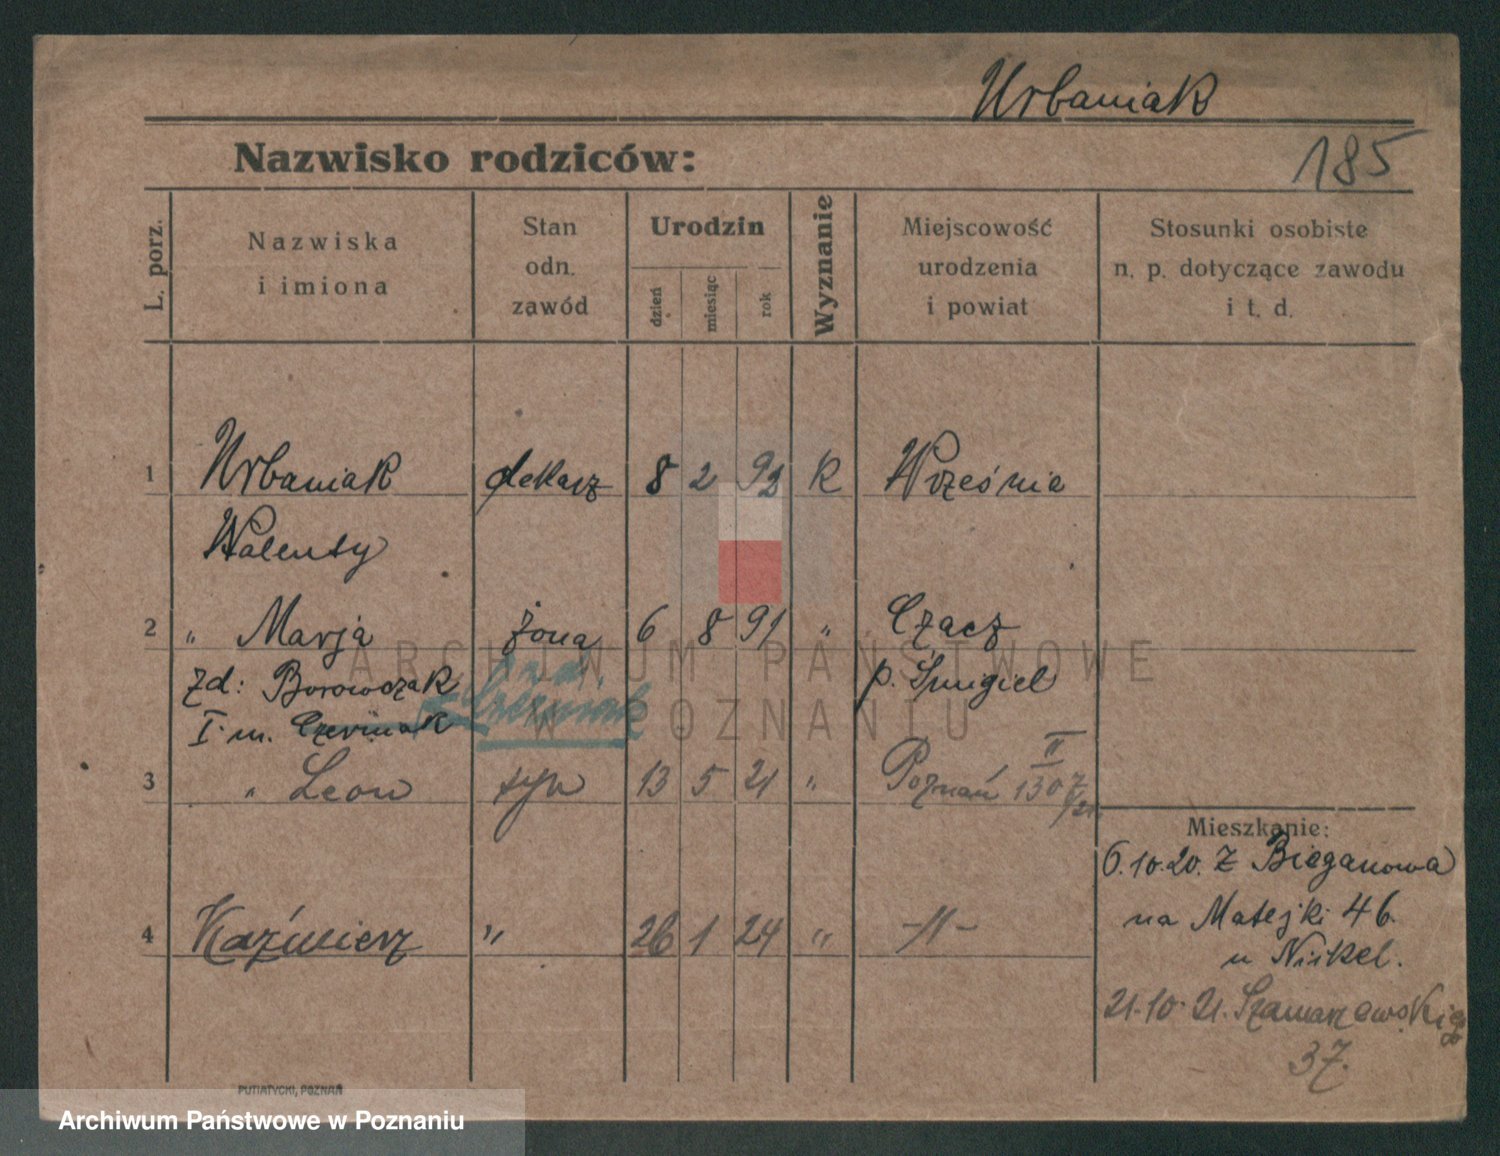 Urbaniak
Nazwisko rodziców:
185
L. porz.
Nazwiska
i imiona
Stan
odn.
zawód
Urodzin
dzień
miesiąc
rok
Wyznanie
Miejscowość
urodzenia
i powiat
Stosunki osobiste
n. p. dotyczące zawodu
i t. d.
1 Urbaniak dekarz 8 2 93 K Września
Walenty
2 " Marja żona 6 8 91 " Czacz
zd: Borowczak p. Śmigiel
I. m. Czerwiak
zd.
3 " Leon syn 13 5 21 " Poznań II 1307/21.
Mieszkanie:
6.10.20. z Bieganowa
na Matejki 46.
u Nickel.
4 Kaźmierz " 26 1 24 " -"-
21.10.21. Szamarzewskiego
37.
PUTIATYCKI, POZNAŃ
ARCHIWUM PAŃSTWOWE
W POZNANIU
Archiwum Państwowe w Poznaniu